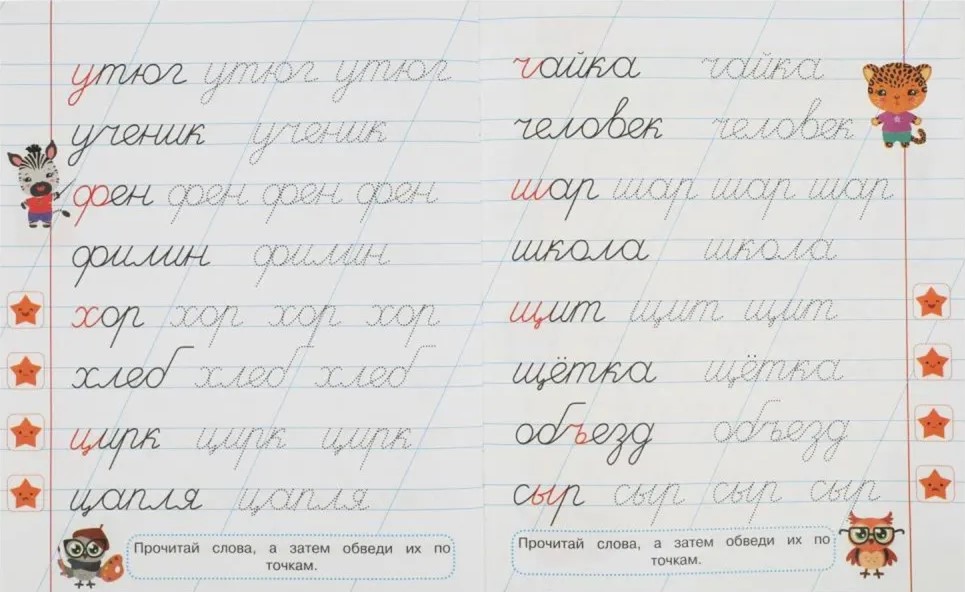 утюг утюг утюг
ученик ученик
фен фен фен фен
филин филин
хор хор хор хор
хлеб хлеб хлеб
цирк цирк цирк
цапля цапля
Прочитай слова, а затем обведи их по
точкам.
чайка чайка
человек человек
шар шар шар шар
школа школа
щит щит щит
щётка щётка
объезд объезд
сыр сыр сыр сыр
Прочитай слова, а затем обведи их по
точкам.